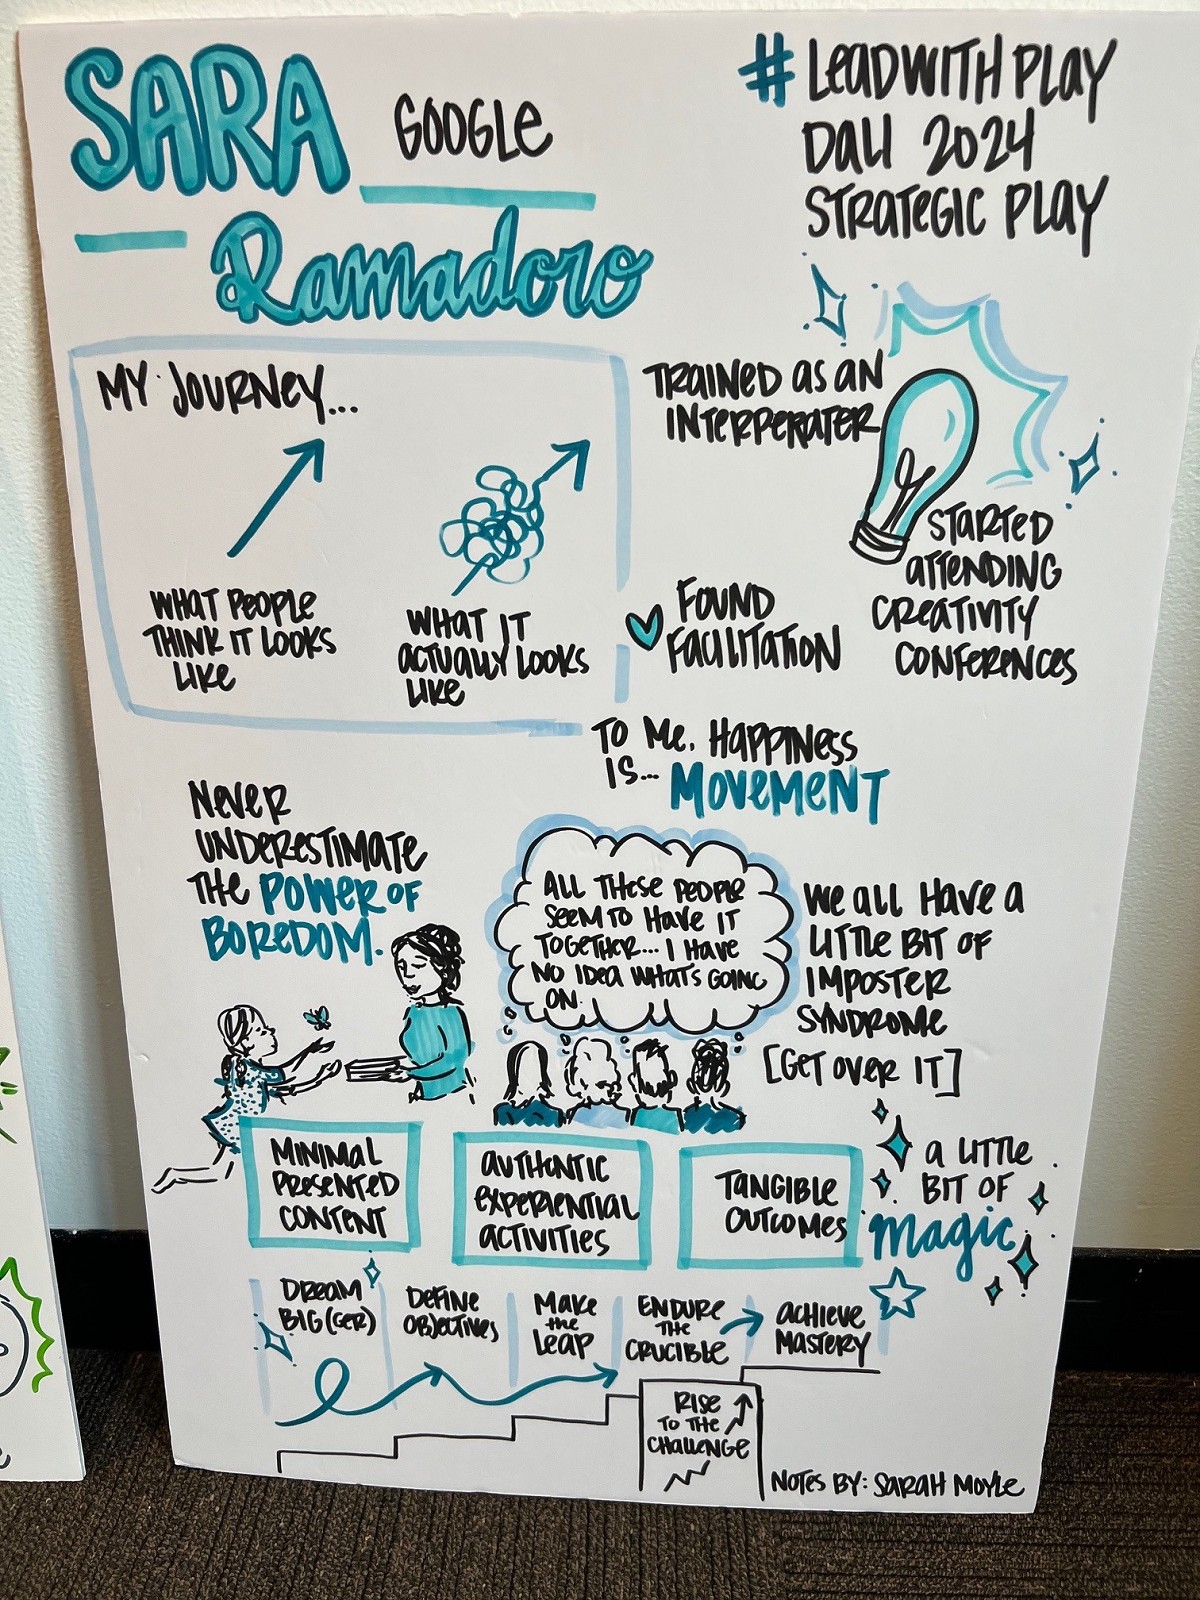 SARA
GOOGLE
Ramadoro
# LEADWITHPLAY
DALL 2024
STRATEGIC PLAY
MY JOURNEY...
WHAT PEOPLE
THINK IT LOOKS
LIKE
WHAT IT
ACTUALLY LOOKS
LIKE
TRAINED AS AN
INTERPERATER
STARTED
ATTENDING
CREATIVITY
CONFERENCES
FOUND
FACILITATION
TO ME, HAPPINESS
IS... MOVEMENT
NEVER
UNDERESTIMATE
THE POWER OF
BOREDOM.
ALL THESE PEOPLE
SEEM TO HAVE IT
TOGETHER... I HAVE
NO IDEA WHAT'S GOING
ON.
WE ALL HAVE A
LITTLE BIT OF
IMPOSTER
SYNDROME
[GET OVER IT]
MINIMAL
PRESENTED
CONTENT
AUTHENTIC
EXPERIENTIAL
ACTIVITIES
TANGIBLE
OUTCOMES
A LITTLE
BIT OF
magic
DREAM
BIG(GER)
DEFINE
OBJECTIVES
MAKE
THE
LEAP
ENDURE
THE
CRUCIBLE
ACHIEVE
MASTERY
RISE
TO THE
CHALLENGE
NOTES BY: SARAH MOYLE